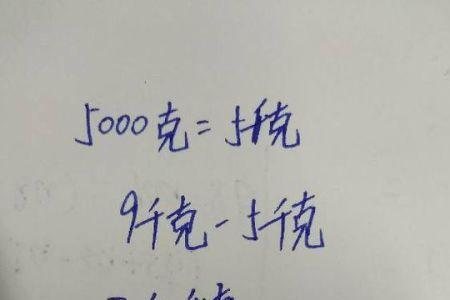 5000克=5千克
9千克-5千克